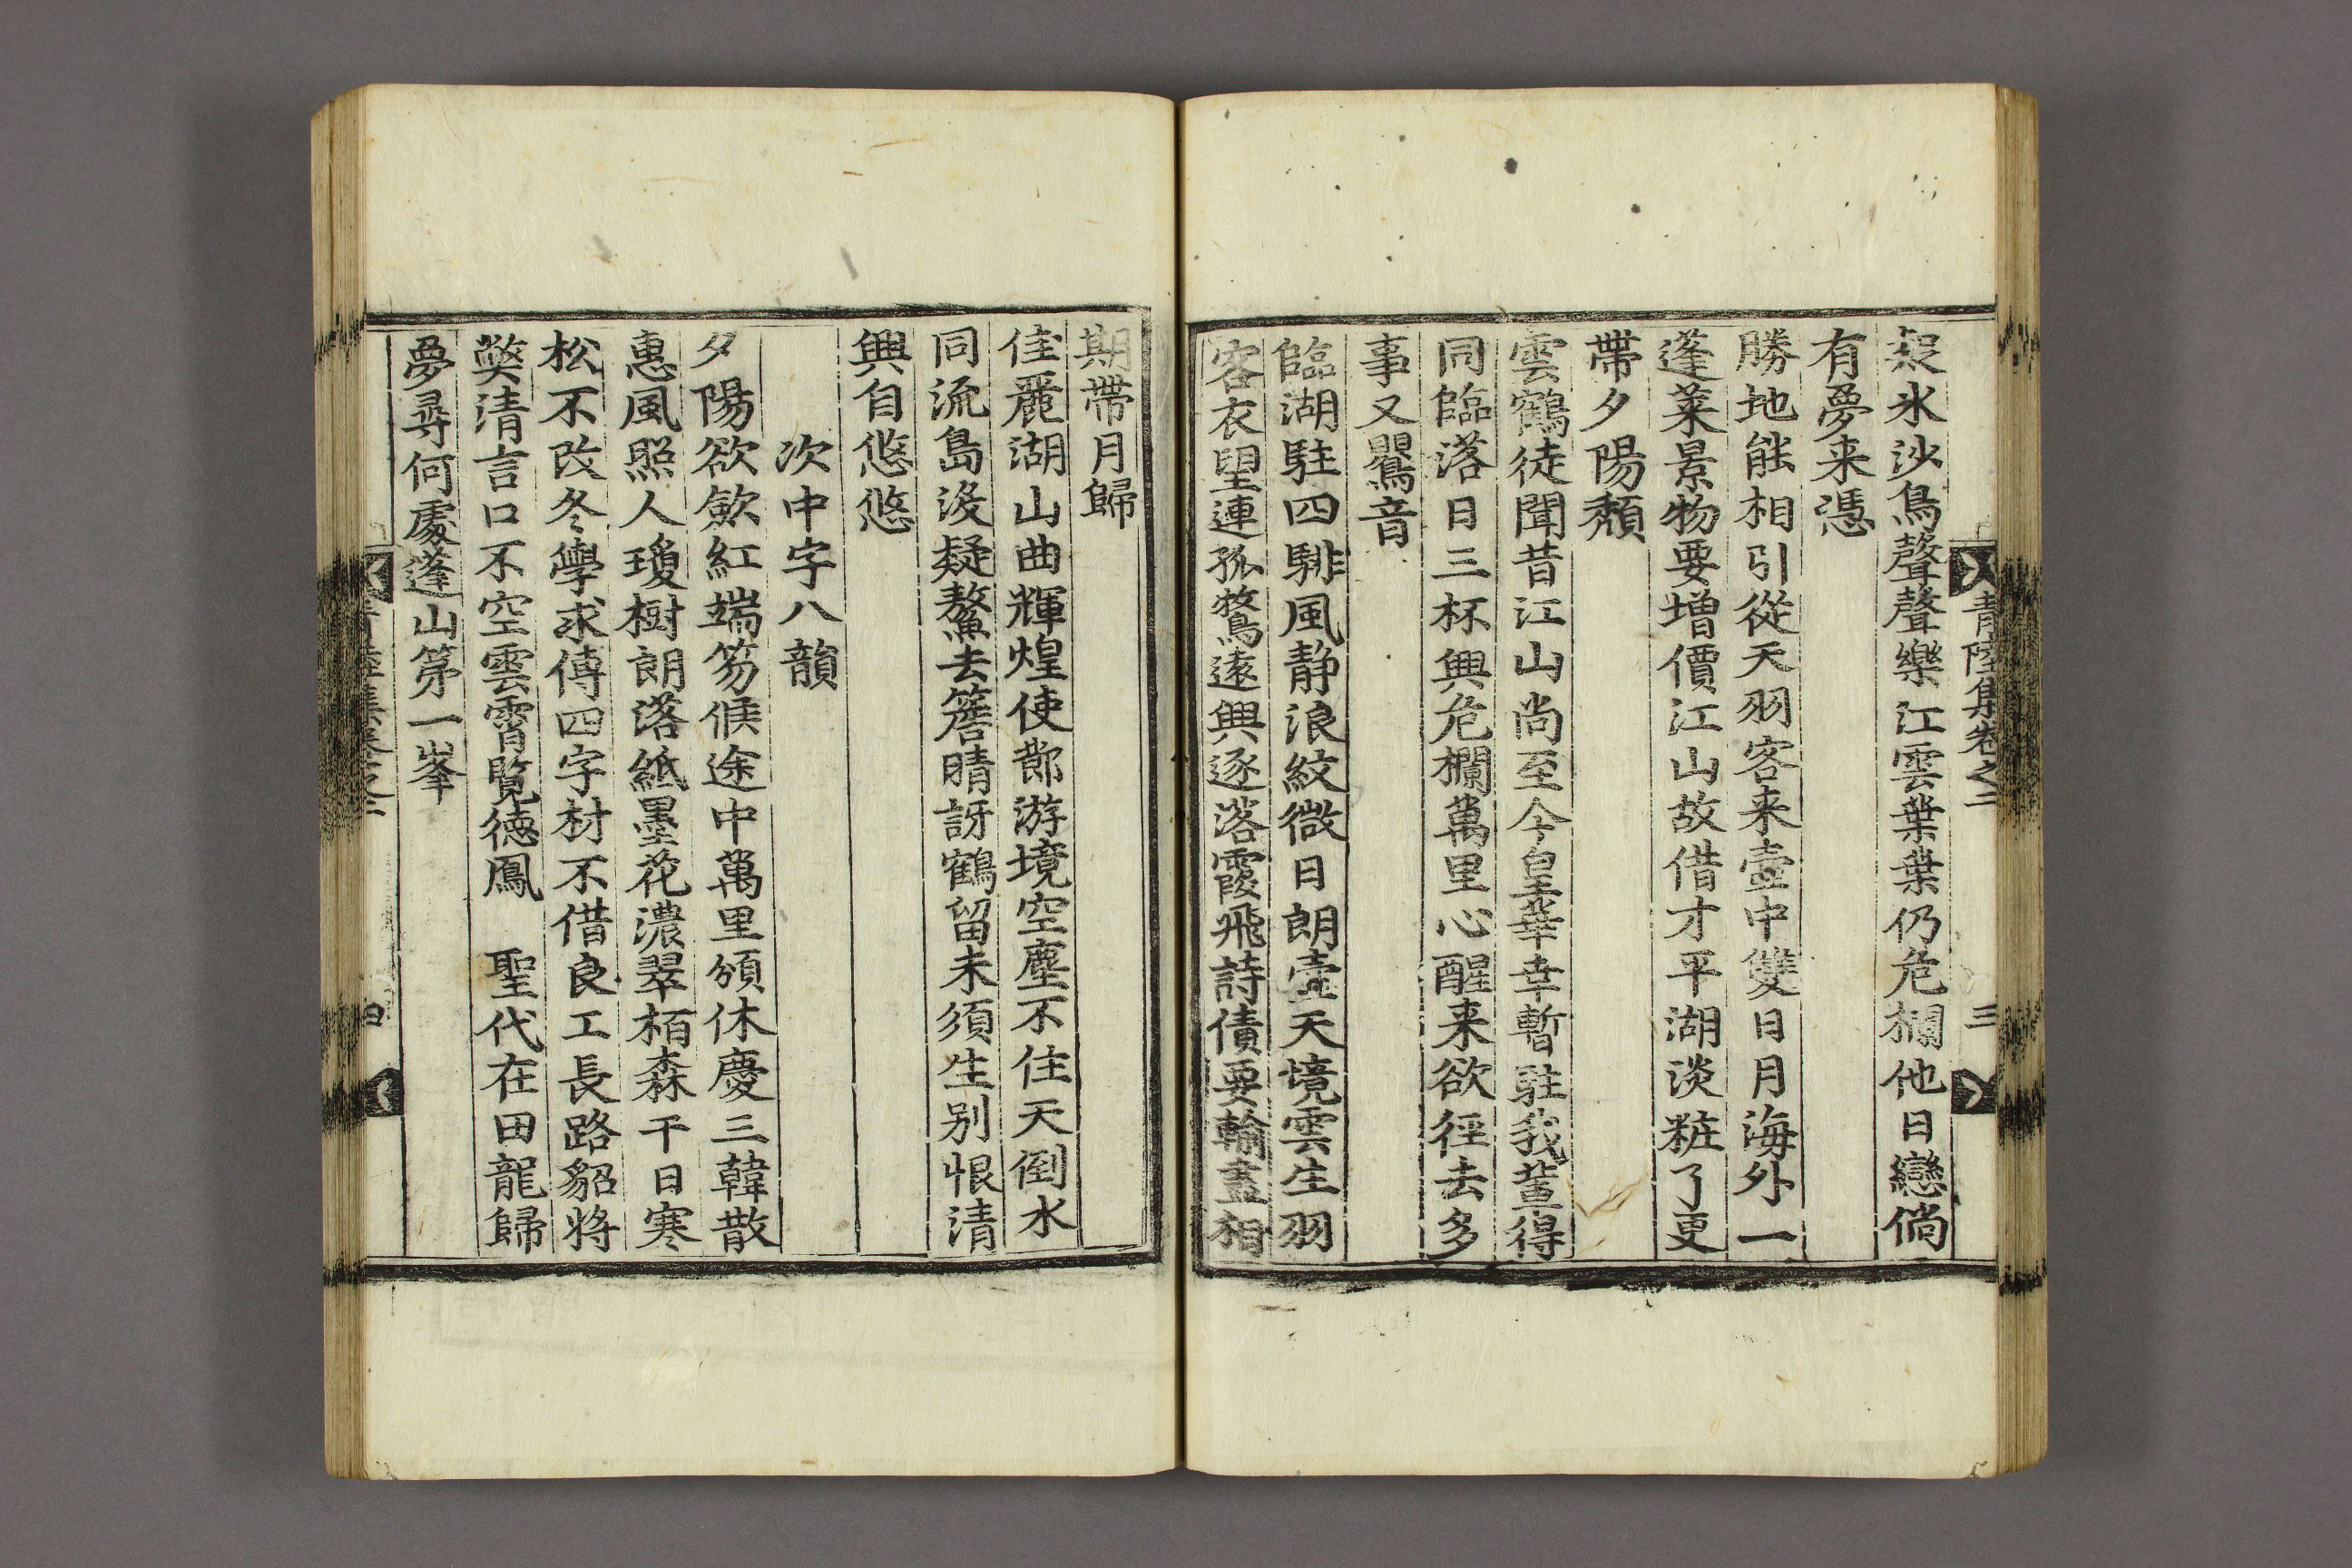 氷沙鳥聲聲樂江雲葉葉仍危欄他日戀倘
有夢来憑
勝地能相引從天羽客来壺中雙日月海外一
蓬萊景物要增價江山故借才平湖淡粧了更
帶夕陽頹
雲鶴徒聞昔江山尚至今皇華幸暫駐我輩得
同臨落日三杯興危欄萬里心醒来欲徑去多
事又鸎音
臨湖駐四騑風静浪紋微日朗壺天境雲生羽
客衣望連孤鶩遠興逐落霞飛詩債要輸盡相
青陸集卷之二
三
期帶月歸
佳麗湖山曲輝煌使節游境空塵不住天倒水
同流島没疑鰲去簷晴訝鶴留未須生别恨清
興自悠悠
次中字八韻
夕陽欲歛紅端笏候途中萬里頒休慶三韓散
惠風照人瓊樹朗落紙墨花濃翠栢森干日寒
松不改冬學求傳四字材不借良工長路貂將
獘清言口不空雲霄覽德鳳　聖代在田龍歸
夢尋何處蓬山第一峯
四